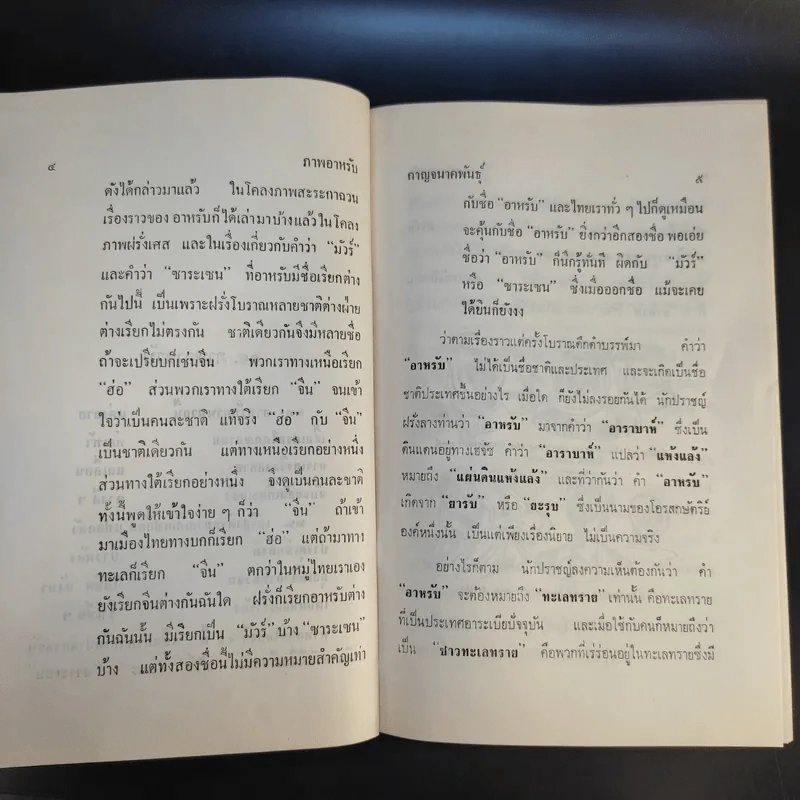 ๔
ภาพอาหรับ
ดังได้กล่าวมาแล้ว ในโคลงภาพสะระกาฉวน
เรื่องราวของ อาหรับก็ได้เล่ามาบ้างแล้วในโคลง
ภาพฝรั่งเศส และในเรื่องเกี่ยวกับคำว่า “มัวร์”
และคำว่า “ซาระเซน” ที่อาหรับมีชื่อเรียกต่าง
กันไปนี้ เป็นเพราะฝรั่งโบราณหลายชาติต่างฝ่าย
ต่างเรียกไม่ตรงกัน ชาติเดียวกันจึงมีหลายชื่อ
ถ้าจะเปรียบก็เช่นจีน พวกเราทางเหนือเรียก
“ฮ่อ” ส่วนพวกเราทางใต้เรียก “จีน” จนเข้า
ใจว่าเป็นคนละชาติ แท้จริง “ฮ่อ” กับ “จีน”
เป็นชาติเดียวกัน แต่ทางเหนือเรียกอย่างหนึ่ง
ส่วนทางใต้เรียกอย่างหนึ่ง จึงดูเป็นคนละชาติ
ทั้งนี้พูดให้เข้าใจง่าย ๆ ก็ว่า “จีน” ถ้าเข้า
มาเมืองไทยทางบกก็เรียก “ฮ่อ” แต่ถ้ามาทาง
ทะเลก็เรียก “จีน” ตกว่าในหมู่ไทยเราเอง
ยังเรียกจีนต่างกันฉันใด ฝรั่งก็เรียกอาหรับต่าง
กันฉันนั้น มีเรียกเป็น “มัวร์” บ้าง “ซาระเซน”
บ้าง แต่ทั้งสองชื่อนี้ไม่มีความหมายสำคัญเท่า
กาญจนาคพันธุ์
๕
กับชื่อ “อาหรับ” และไทยเราทั่ว ๆ ไปก็ดูเหมือน
จะคุ้นกับชื่อ “อาหรับ” ยิ่งกว่าอีกสองชื่อ พอเอ่ย
ชื่อว่า “อาหรับ” ก็นึกรู้ทันที ผิดกับ “มัวร์”
หรือ “ซาระเซน” ซึ่งเมื่อออกชื่อ แม้จะเคย
ได้ยินก็ยังงง
ว่าตามเรื่องราวแต่ครั้งโบราณดึกดำบรรพ์มา คำว่า
“อาหรับ” ไม่ได้เป็นชื่อชาติและประเทศ และจะเกิดเป็นชื่อ
ชาติประเทศขึ้นอย่างไร เมื่อใด ก็ยังไม่ลงรอยกันได้ นักปราชญ์
ฝรั่งลางท่านว่า “อาหรับ” มาจากคำว่า “อาราบาห์” ซึ่งเป็น
ดินแดนอยู่ทางเฮจัซ คำว่า “อาราบาห์” แปลว่า “แห้งแล้ง”
หมายถึง “แผ่นดินแห้งแล้ง” และที่ว่ากันว่า คำ “อาหรับ”
เกิดจาก “ยารับ” หรือ “ยะรุบ” ซึ่งเป็นนามของโอรสกษัตริย์
องค์หนึ่งนั้น เป็นแต่เพียงเรื่องนิยาย ไม่เป็นความจริง
อย่างไรก็ตาม นักปราชญ์ลงความเห็นต้องกันว่า คำ
“อาหรับ” จะต้องหมายถึง “ทะเลทราย” เท่านั้น คือทะเลทราย
ที่เป็นประเทศอาระเบียปัจจุบัน และเมื่อใช้กับคนก็หมายถึงว่า
เป็น “ชาวทะเลทราย” คือพวกที่เร่ร่อนอยู่ในทะเลทรายซึ่งมี